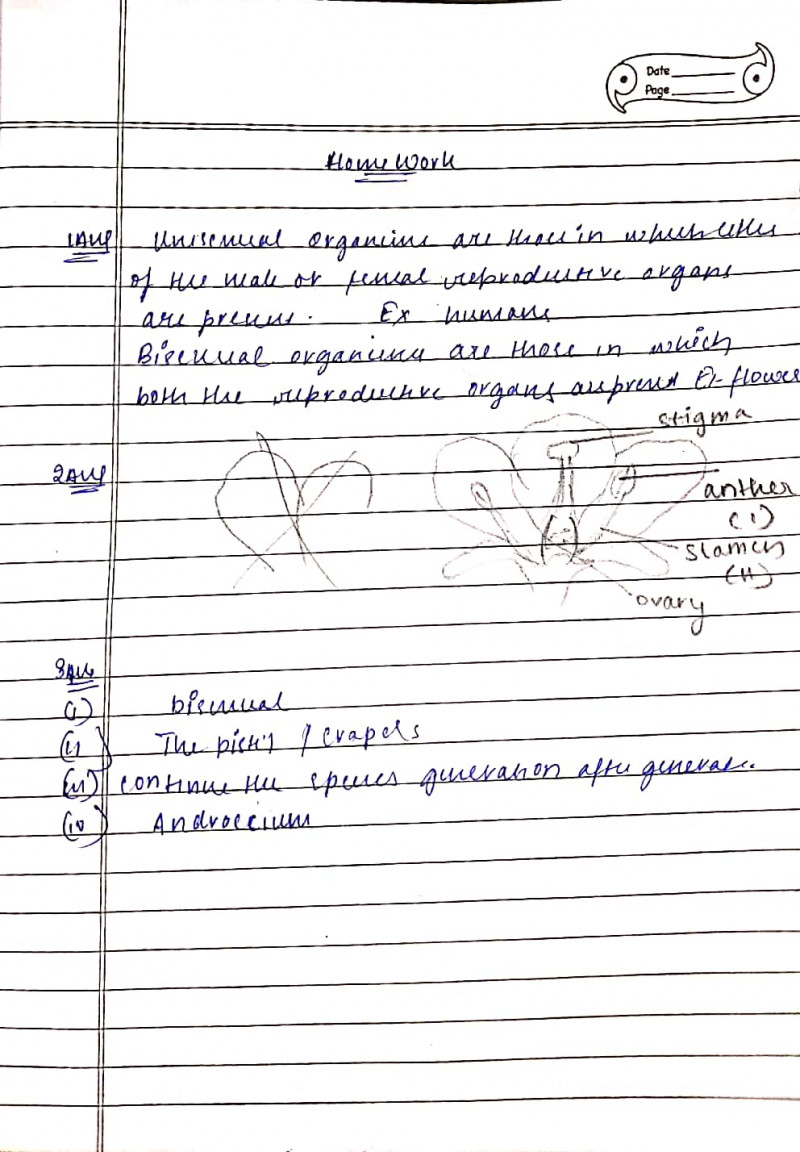 Date
Page
Home Work
1Ans Unisexual organisms are those in which either
of the male or femal reproductive organs
are presens. Ex humans
Bisexual organisms are those in which
both the reproductive organs are present Ex- flower
stigma
2Ans
anther
(I)
stamen
(II)
ovary
3Ans
(i) bisexual
(ii) The pistil / crapels
(iii) continue the species generation after generat.
(iv) Androecium